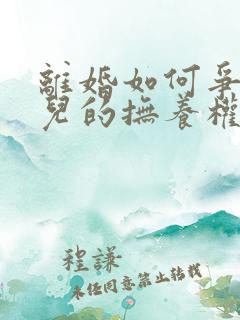 離婚如何爭
兒的撫養權
程謙
未任同意禁止轉載